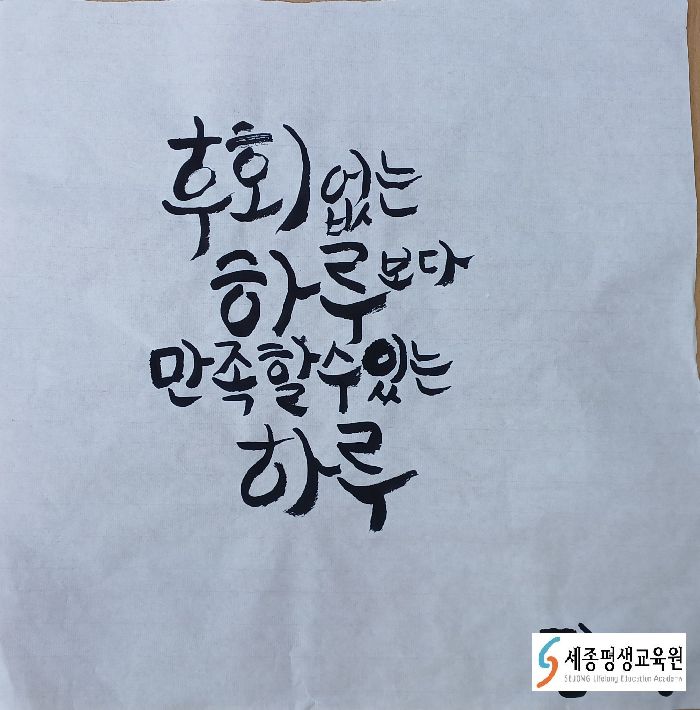 후회 없는
하루보다
만족할 수 있는
하루
세종평생교육원
SEJONG Lifelong Education Academy